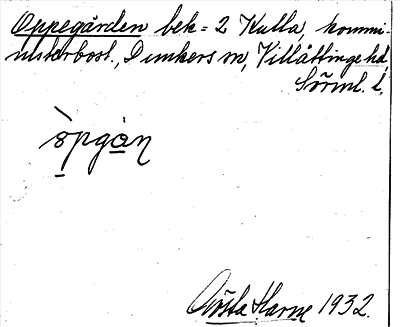 Oppegården bek = 2 Kulla, kommi-
nisterbost., Dunkers sn, Villåttinge hd,
Sörml. l.
òpgån
Gösta Harne 1932.